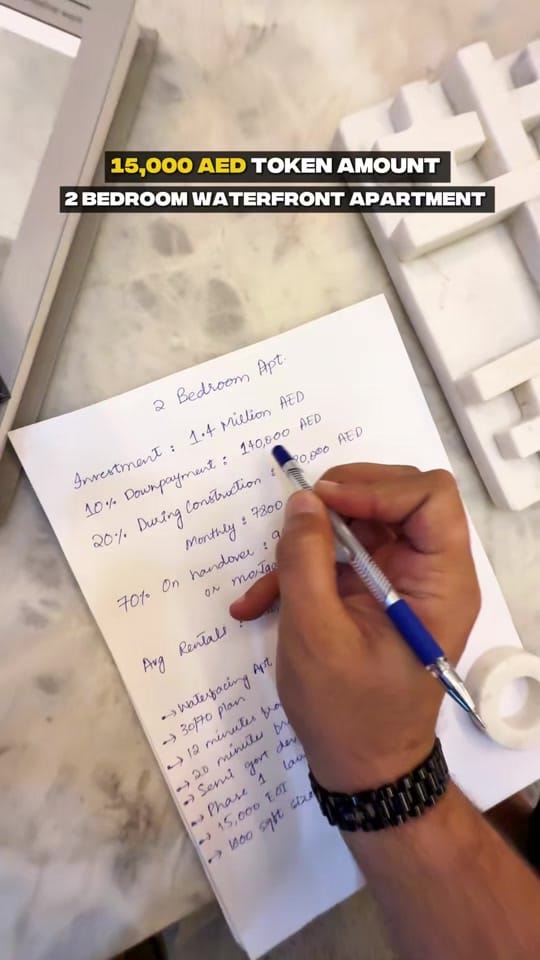 15,000 AED TOKEN AMOUNT
2 BEDROOM WATERFRONT APARTMENT
2 Bedroom Apt.
Investment : 1.4 Million AED
10% Downpayment : 140,000 AED
20% During Construction : 80,000 AED
Monthly : 7800
70% On handover : 9
or
Avg Rentals :
→ Waterfacing Apt
→ 30/70 Plan
→ 12 minutes
→ 20 minutes
→ Semi govt
→ Phase 1
→ 15,000 EOI
→ 1000 sqft size